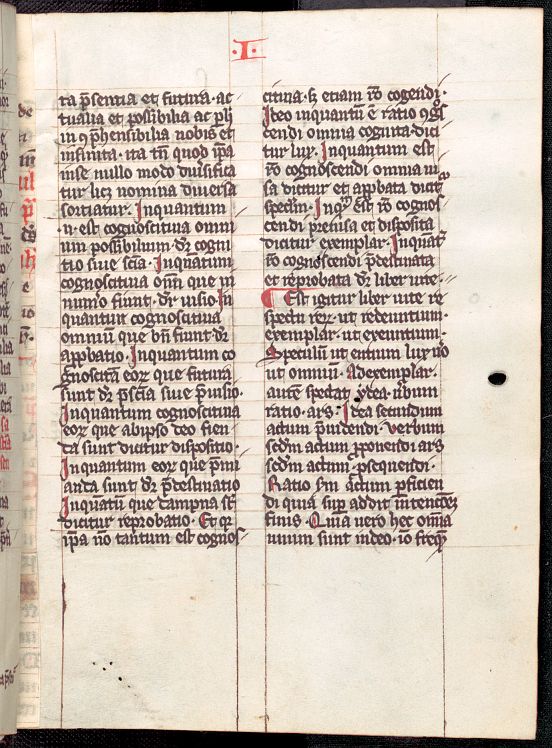 ·I·
ta p̄sentia et futura· ac
tualia et possibilia ac p̱
in ꝯphensibilia nobis et
infinita· ita tn̄ quod ip̄a
in se nullo modo diuisifica
tur lic̄ nomina diuersa
sortiatur· Inquantum
·n· est cognoscitiua omni
um possibilium dr̄ cogni
tio siue scīa· Inquantum
cognoscitiua om̄ que in
fiunt dr̄ uisio· In
quantum cognoscitiua
omniū que bn̄ fiunt dr̄
approbatio· Inquantum co
gnoscitiua eoꝝ que futura
sunt dr̄ p̄scīa siue p̄uisio·
Inquantum cognoscitiua
eoꝝ que ab ipso deo fien
da sunt dicitur dispositio·
Inquantum eoꝝ que p̄mi
anda sunt dr̄ p̄destinatio
Inquatū que dampnā st̄
dicitur reprobatio· Et qꝛ
ip̄a nō tantum est cognos
citiua· sꝫ etiam rō cogendi·
Ideo inquantū ē ratio ꝯgs
cendi omnia cognita dici
tur lux· Inquantum est
rō cognoscendi omnia ui
sa dicitur et approbata dicit
specłm· Inq̄ est rō cognos
cendi preuisa et disposita
dicitur exemplar· Inquat̄
rō cognoscendi p̄destinata
et reprobata dr̄ liber uite·
¶ Est igitur liber uite re
spectu reꝝ· ut redeuntium·
exemplar· ut exeuntium·
Speculū ut entium lux uō
ut omniū· Ad exemplar·
autē spectat ydea· uerbum
ratio· ars· Idea secundum
actum p̄uidendi· Verbum
scdm̄ actum p̱ponendi ars
scdm̄ actum· p̱sequendi·
Ratio sm̄ actum p̱ficien
di quia suꝑ addit intencōeꝫ
finis· Quia uero hec omnia
unum sunt in deo· iō freq̄